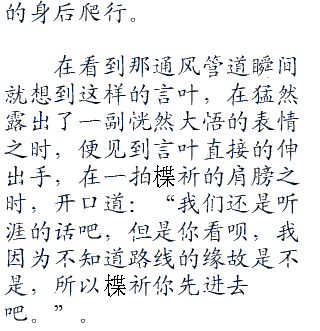 的身后爬行。
在看到那通风管道瞬间
就想到这样的言叶，在猛然
露出了一副恍然大悟的表情
之时，便见到言叶直接的伸
出手，在一拍楪祈的肩膀之
时，开口道：“我们还是听
涯的话吧，但是你看呗，我
因为不知道路线的缘故是不
是，所以楪祈你先进去
吧。”。